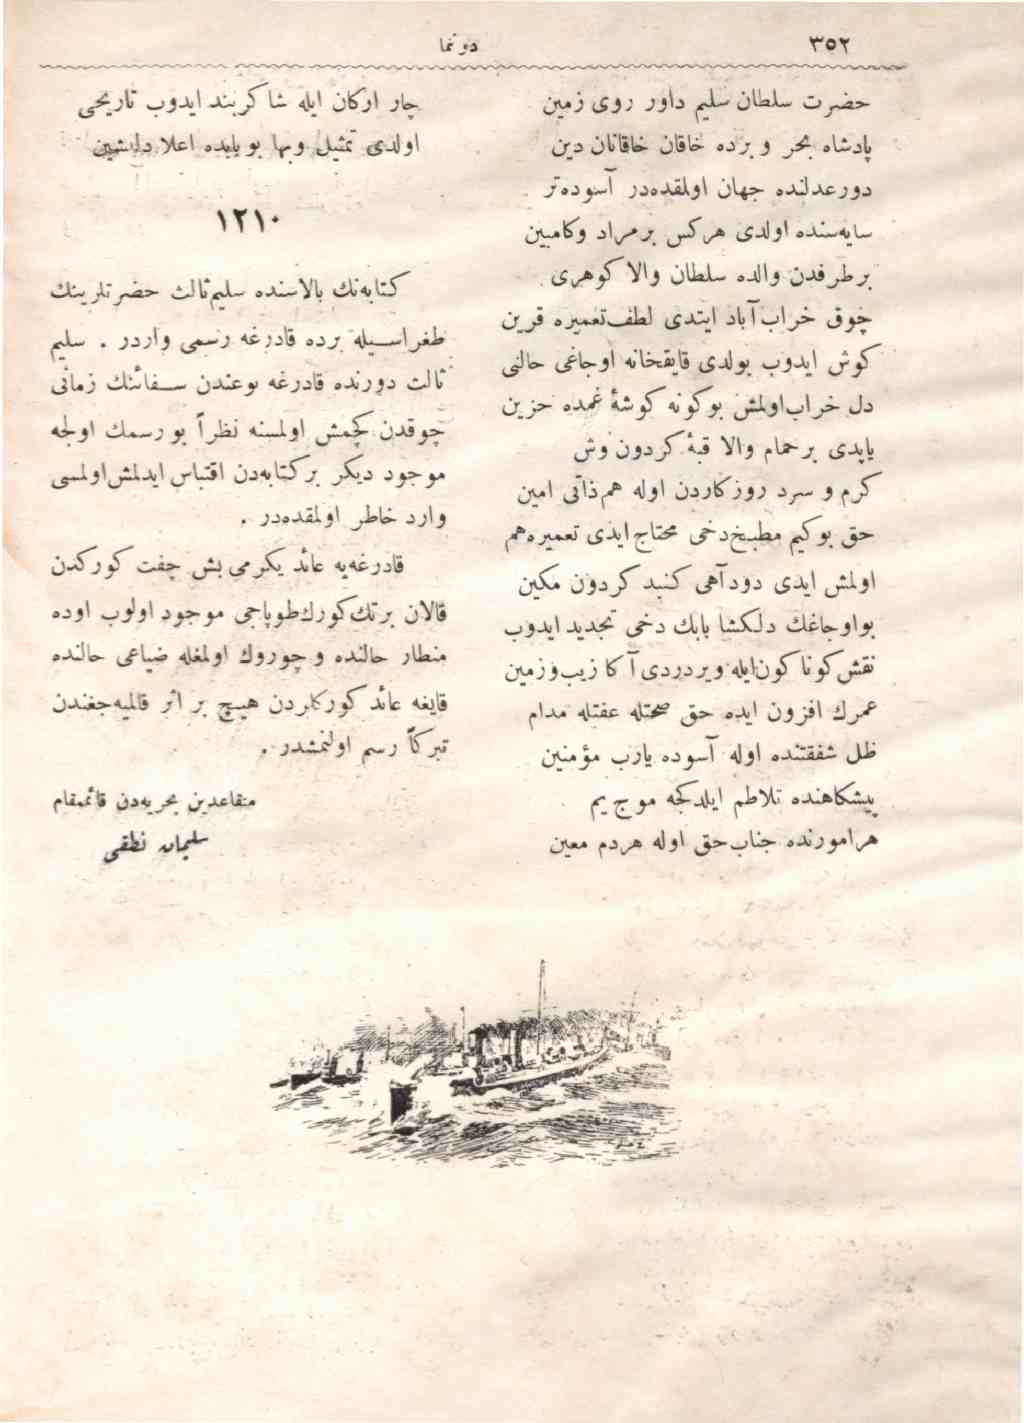 ٣٥٢
دونما
حضرت سلطان سليم داور روى زمين
پادشاه بحر و برده خاقان خاقانان دين
دورعدلنده جهان اولمقده‌در آسوده‌تر
سايه‌سنده اولدى هركس برمراد وكامبين
برطرفدن والده سلطان والا كوهرى
چوق خراب‌آباد ايتدى لطف‌تعميره قرين
كوش ايدوب بولدى قايقخانه اوجاغى حالنى
دل خراب‌اولمش بوكونه كوشهٔ غمده حزين
ياپدى برحمام والا قبهٔ كردون وش
كرم و سرد روزكاردن اوله هم‌ذاتى امين
حق بوكيم مطبخ‌دخى محتاج‌ايدى تعميره‌هم
اولمش ايدى دودآهى كنبد كردون مكين
بواوجاغك دلكشا بابك دخى تجديد ايدوب
نقش‌كوناكون‌ايله ويردردى آكا زيب‌وزمين
عمرك افزون ايده حق صحتله عفتله مدام
ظل شفقتنده اوله آسوده يارب مؤمنين
پيشكاهنده تلاطم ايلدكجه موج يم
هرامورنده جناب‌حق اوله هردم معين
چار اركان ايله شاكربند ايدوب تاريخى
اولدى تمثيل وبها بوبابده اعلا دلنشين
١٢١٠
كتابه‌نك بالاسنده سليم‌ثالث حضرتلرينك
طغراسيله برده قادرغه رسمى واردر . سليم
ثالث دورنده قادرغه نوعندن سفائنك زمانى
چوقدن كچمش اولمسنه نظراً بورسمك اولجه
موجود ديكر بركتابه‌دن اقتباس ايدلمش‌اولمسى
وارد خاطر اولمقده‌در .
قادرغه‌يه عائد يكرمى‌بش چفت كوركدن
قالان برتك‌كورك‌طوپاجى موجود اولوب اوده
منطار حالنده و چوروك اولمغله ضياعى حالنده
قايغه عائد كوركلردن هيچ بر اثر قالميه‌جغندن
تبركاً رسم اولنمشدر .
متقاعدين بحريه‌دن قائممقام
سليمان نطقى